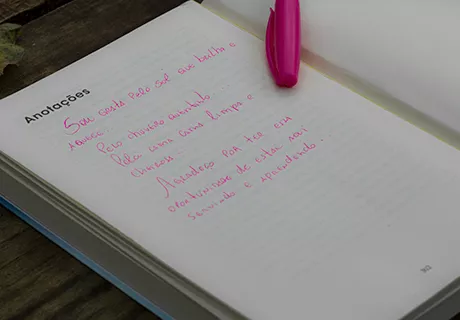 Anotações
Sou grata pelo sol que brilha e
aquece.
Pelo chuveiro quentinho
Pela cama limpa e
cheirosa.
Agradeço por ter essa
oportunidade de estar aqui
servindo e aprendendo.